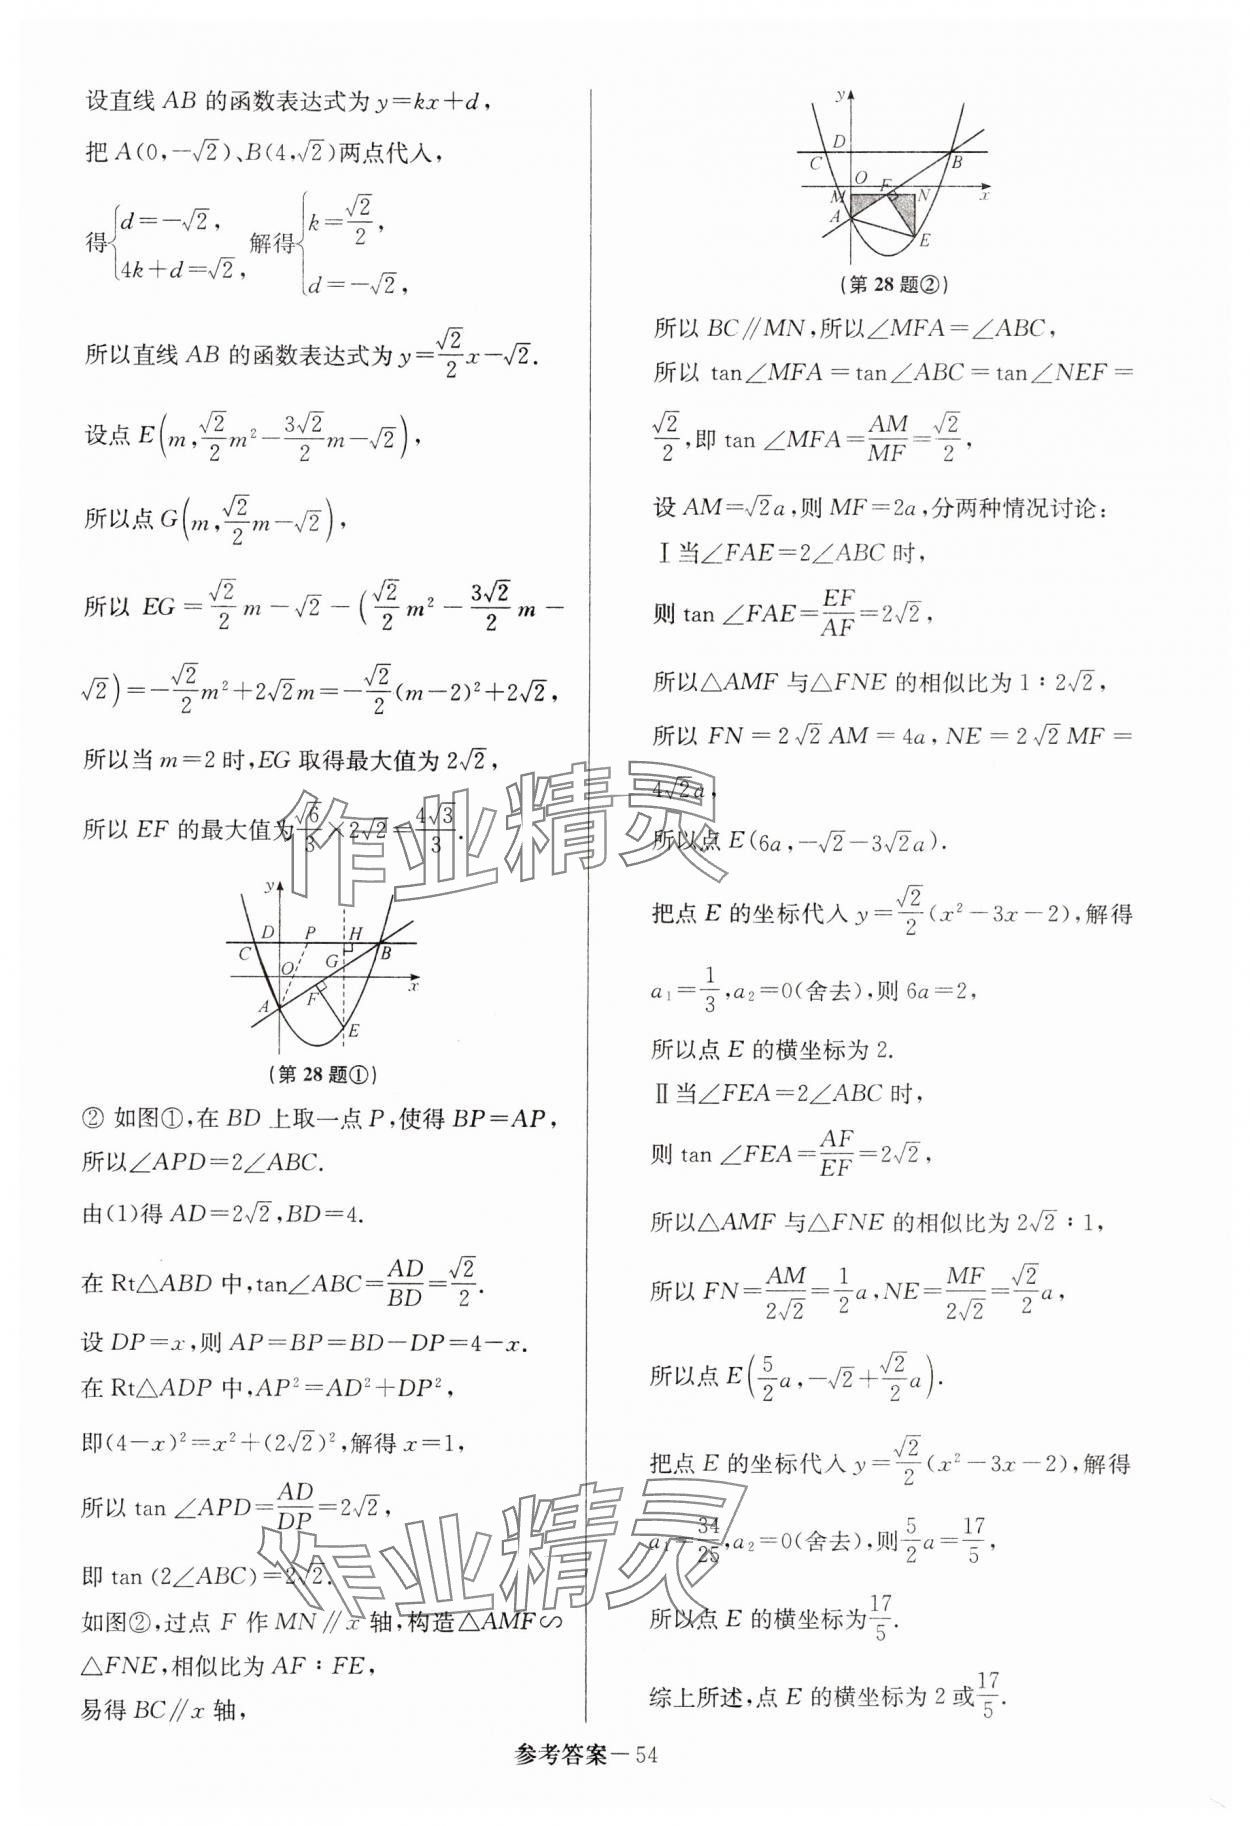 设直线 AB 的函数表达式为 y=kx+d,
把 A(0,-√2)、B(4,√2)两点代入,
得{d=-√2, 4k+d=√2, 解得{k=√2/2, d=-√2,
所以直线 AB 的函数表达式为 y=√2/2x-√2.
设点 E(m,√2/2m²-3√2/2m-√2),
所以点 G(m,√2/2m-√2),
所以 EG=√2/2m-√2-(√2/2m²-3√2/2m-
√2)=-√2/2m²+2√2m=-√2/2(m-2)²+2√2,
所以当 m=2 时,EG 取得最大值为 2√2,
所以 EF 的最大值为√6/3×2√2=4√3/3.
y
D P H
C G B
O x
F
A
E
(第 28 题①)
② 如图①,在 BD 上取一点 P,使得 BP=AP,
所以∠APD=2∠ABC.
由(1)得 AD=2√2,BD=4.
在 Rt△ABD 中,tan∠ABC=AD/BD=√2/2.
设 DP=x,则 AP=BP=BD-DP=4-x.
在 Rt△ADP 中,AP²=AD²+DP²,
即(4-x)²=x²+(2√2)²,解得 x=1,
所以 tan ∠APD=AD/DP=2√2,
即 tan (2∠ABC)=2√2.
如图②,过点 F 作 MN∥x 轴,构造△AMF∽
△FNE,相似比为 AF∶FE,
易得 BC∥x 轴,
y
D
C B
O F
M N x
A
E
(第 28 题②)
所以 BC∥MN,所以∠MFA=∠ABC,
所以 tan∠MFA=tan∠ABC=tan∠NEF=
√2/2,即 tan ∠MFA=AM/MF=√2/2,
设 AM=√2a,则 MF=2a,分两种情况讨论:
Ⅰ当∠FAE=2∠ABC 时,
则 tan ∠FAE=EF/AF=2√2,
所以△AMF 与△FNE 的相似比为 1∶2√2,
所以 FN=2√2AM=4a,NE=2√2MF=
4√2a,
所以点 E(6a,-√2-3√2a).
把点 E 的坐标代入 y=√2/2(x²-3x-2),解得
a₁=1/3,a₂=0(舍去),则 6a=2,
所以点 E 的横坐标为 2.
Ⅱ当∠FEA=2∠ABC 时,
则 tan ∠FEA=AF/EF=2√2,
所以△AMF 与△FNE 的相似比为 2√2∶1,
所以 FN=AM/2√2=1/2a,NE=MF/2√2=√2/2a,
所以点 E(5/2a,-√2+√2/2a).
把点 E 的坐标代入 y=√2/2(x²-3x-2),解得
a₁=34/25,a₂=0(舍去),则5/2a=17/5,
所以点 E 的横坐标为17/5.
综上所述,点 E 的横坐标为 2 或17/5.
参考答案—54
作业精灵
作业精灵